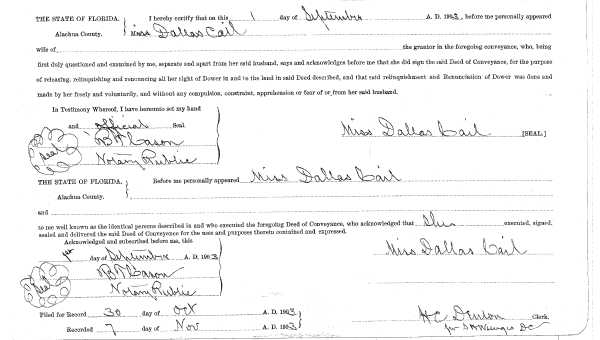 THE STATE OF FLORIDA, I hereby certify that on this 1 day of September A. D. 1903, before me personally appeared
Alachua County. Miss Dallas Cail
wife of the grantor in the foregoing conveyance, who, being
first duly questioned and examined by me, separate and apart from her said husband, says and acknowledges before me that she did sign the said Deed of Conveyance, for the purpose
of releasing, relinquishing and renouncing all her right of Dower in and to the land in said Deed described, and that said relinquishment and Renunciation of Dower was done and
made by her freely and voluntarily, and without any compulsion, constraint, apprehension or fear of or from her said husband.
In Testimony Whereof, I have hereunto set my hand
and official Seal
Miss Dallas Cail [SEAL.]
Seal
Cason
Notary Public
THE STATE OF FLORIDA, Before me personally appeared Miss Dallas Cail
Alachua County.
and
to me well known as the identical persons described in and who executed the foregoing Deed of Conveyance, who acknowledged that she executed, signed,
sealed and delivered the said Deed of Conveyance for the uses and purposes therein contained and expressed.
Acknowledged and subscribed before me, this
1st day of September A. D. 1903
Miss Dallas Cail
Seal
Cason
Notary Public
Filed for Record 30 day of Oct A. D. 1903
H C Denton Clerk.
Recorded 7 day of Nov A. D. 1903
for D C